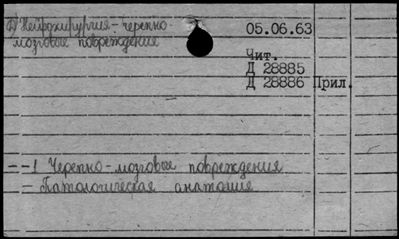 Нейрохирургия - черепно-
мозговые повреждение
05.06.63
Чит.
Д 28885
Д 28886 Прил.
--1 Черепно-мозговые повреждения
- Патологическая анатомия